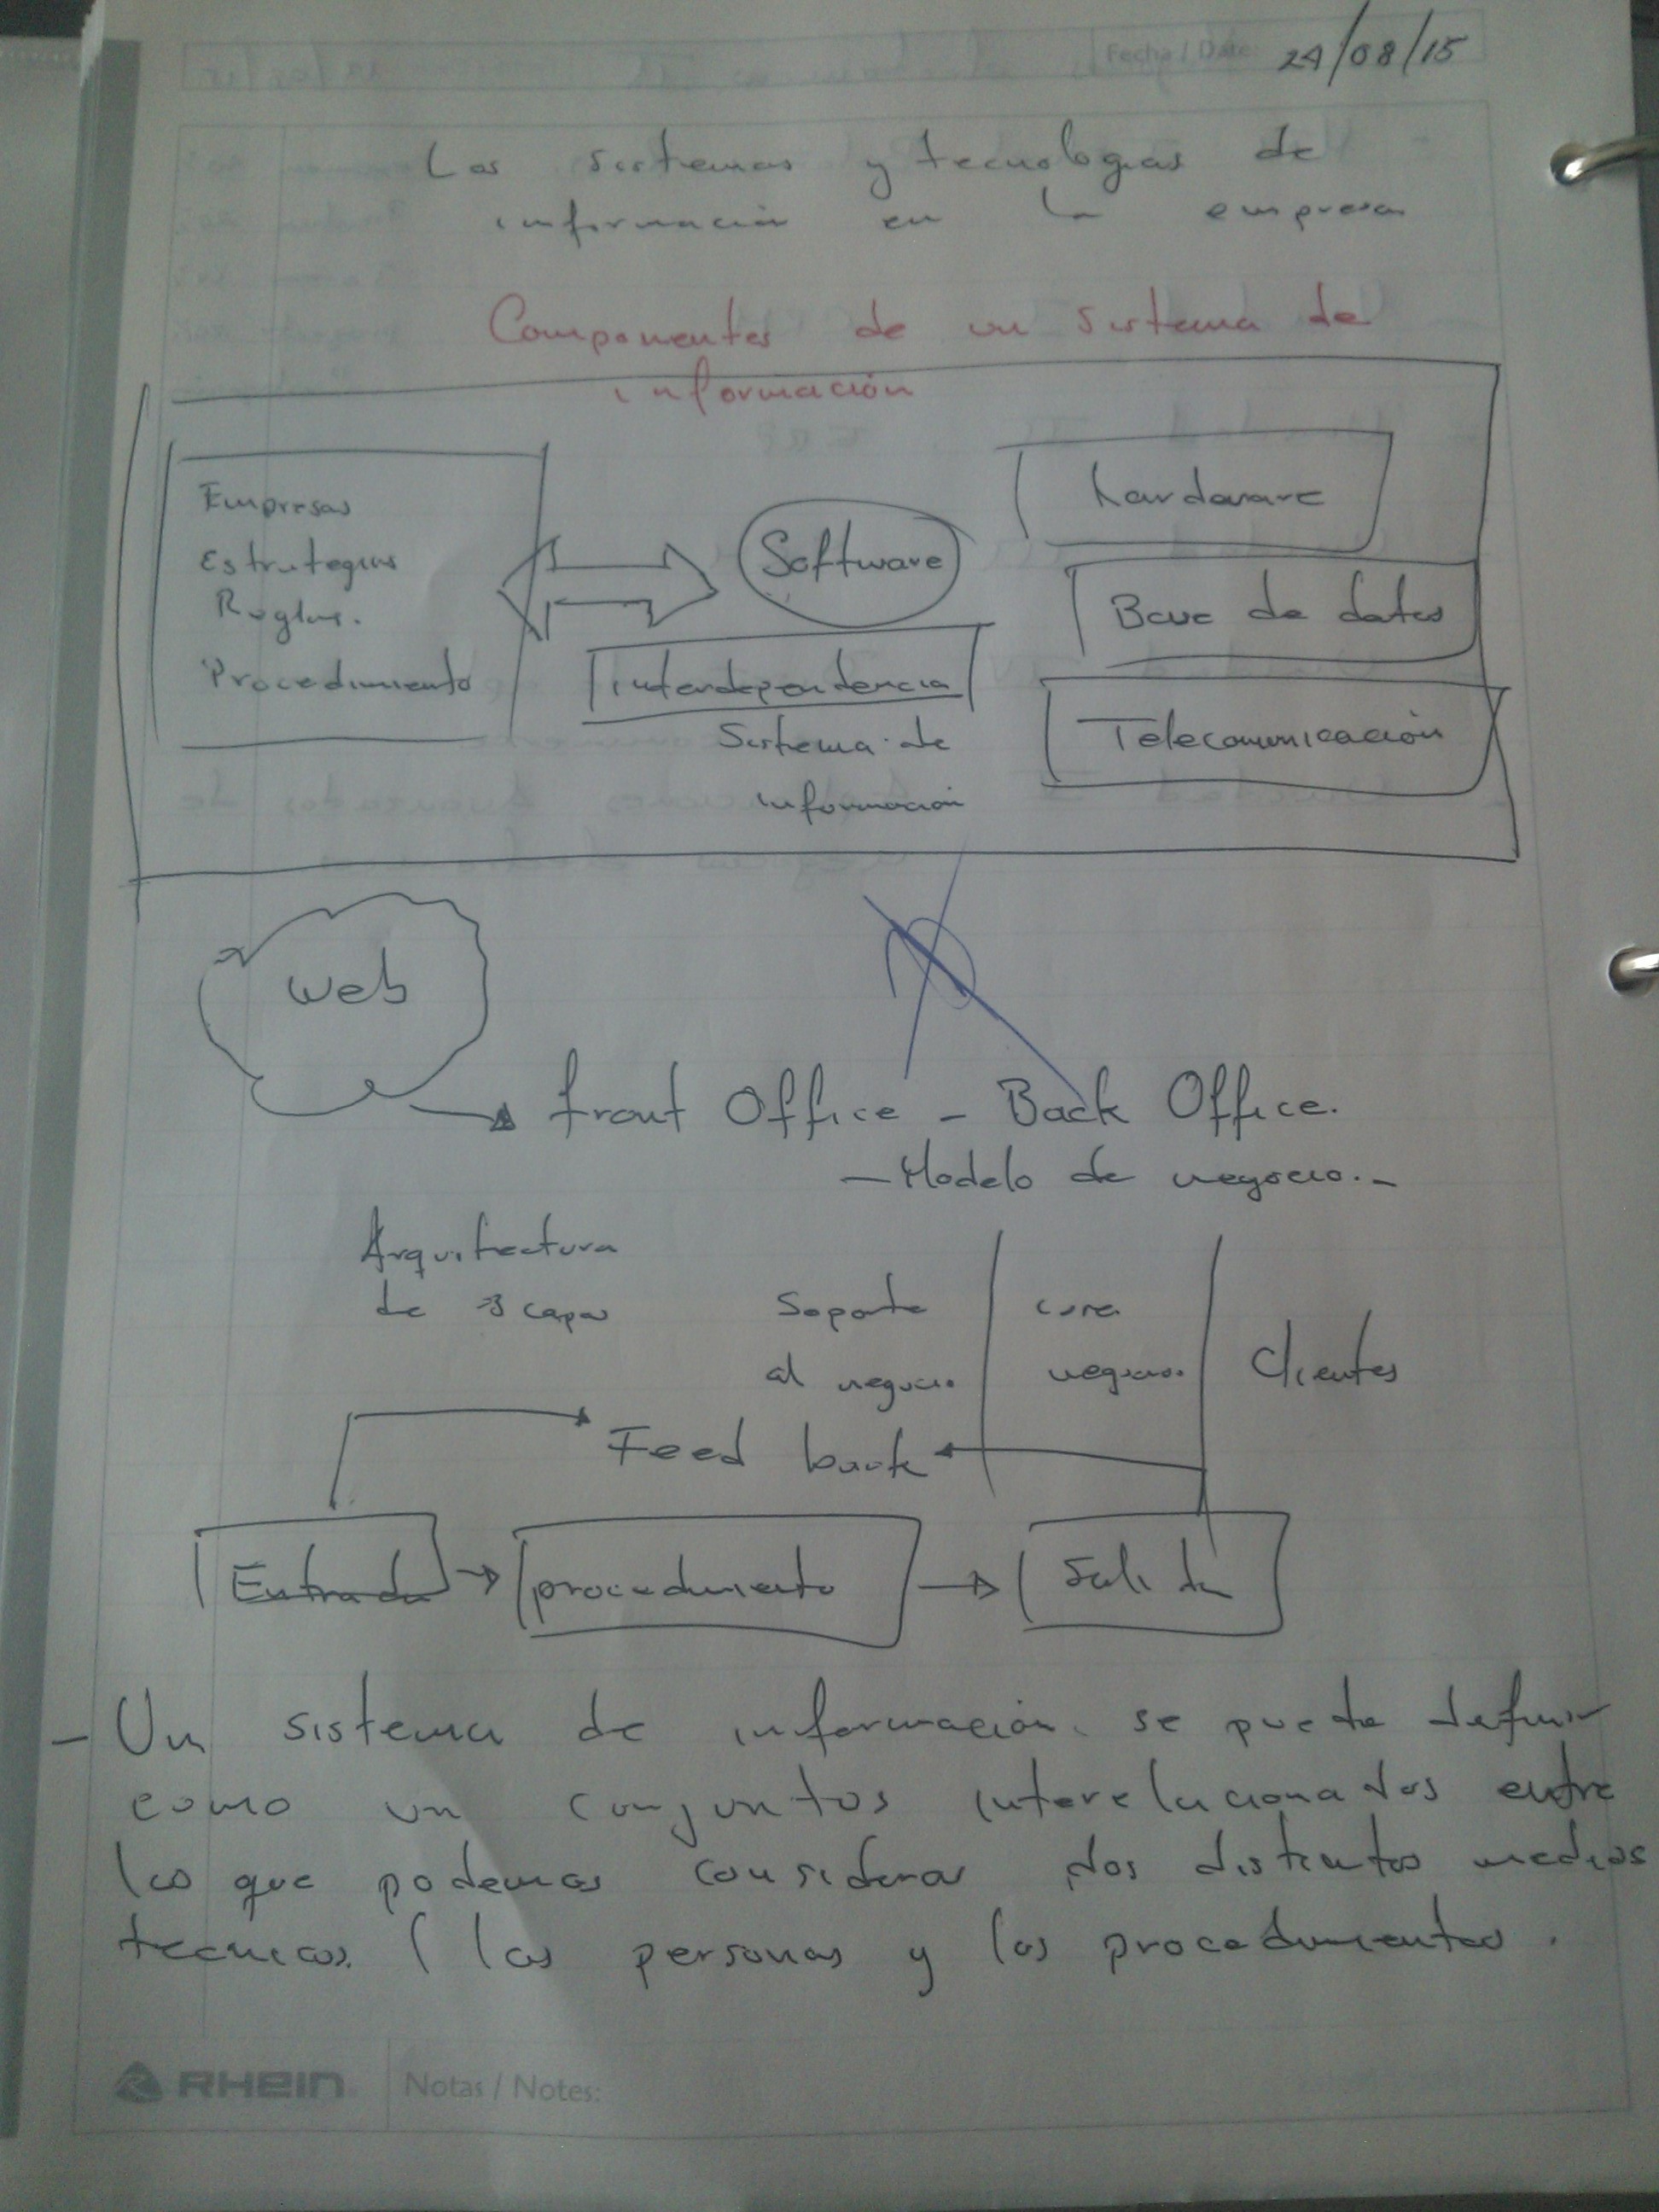 Fecha / Date: 24/08/15
Los sistemas y tecnologias de
información en la empresa
Componentes de un sistema de
información
Empresas
Estrategias
Reglas.
Procedimiento
Software
interdependencia
Sistema de
información
hardware
Base de datos
Telecomunicación
web
front Office - Back Office.
- Modelo de negocio. -
Arquitectura
de 3 capas
Soporte
al negocio.
core
negocio.
Clientes
Feed back
Entrada
procedimiento
Salida
- Un sistema de información se puede definir
como un conjuntos interelacionados entre
los que podemos considerar los distintos medios
tecnicos. ( las personas y los procedimientos.
RHEIN
Notas / Notes: